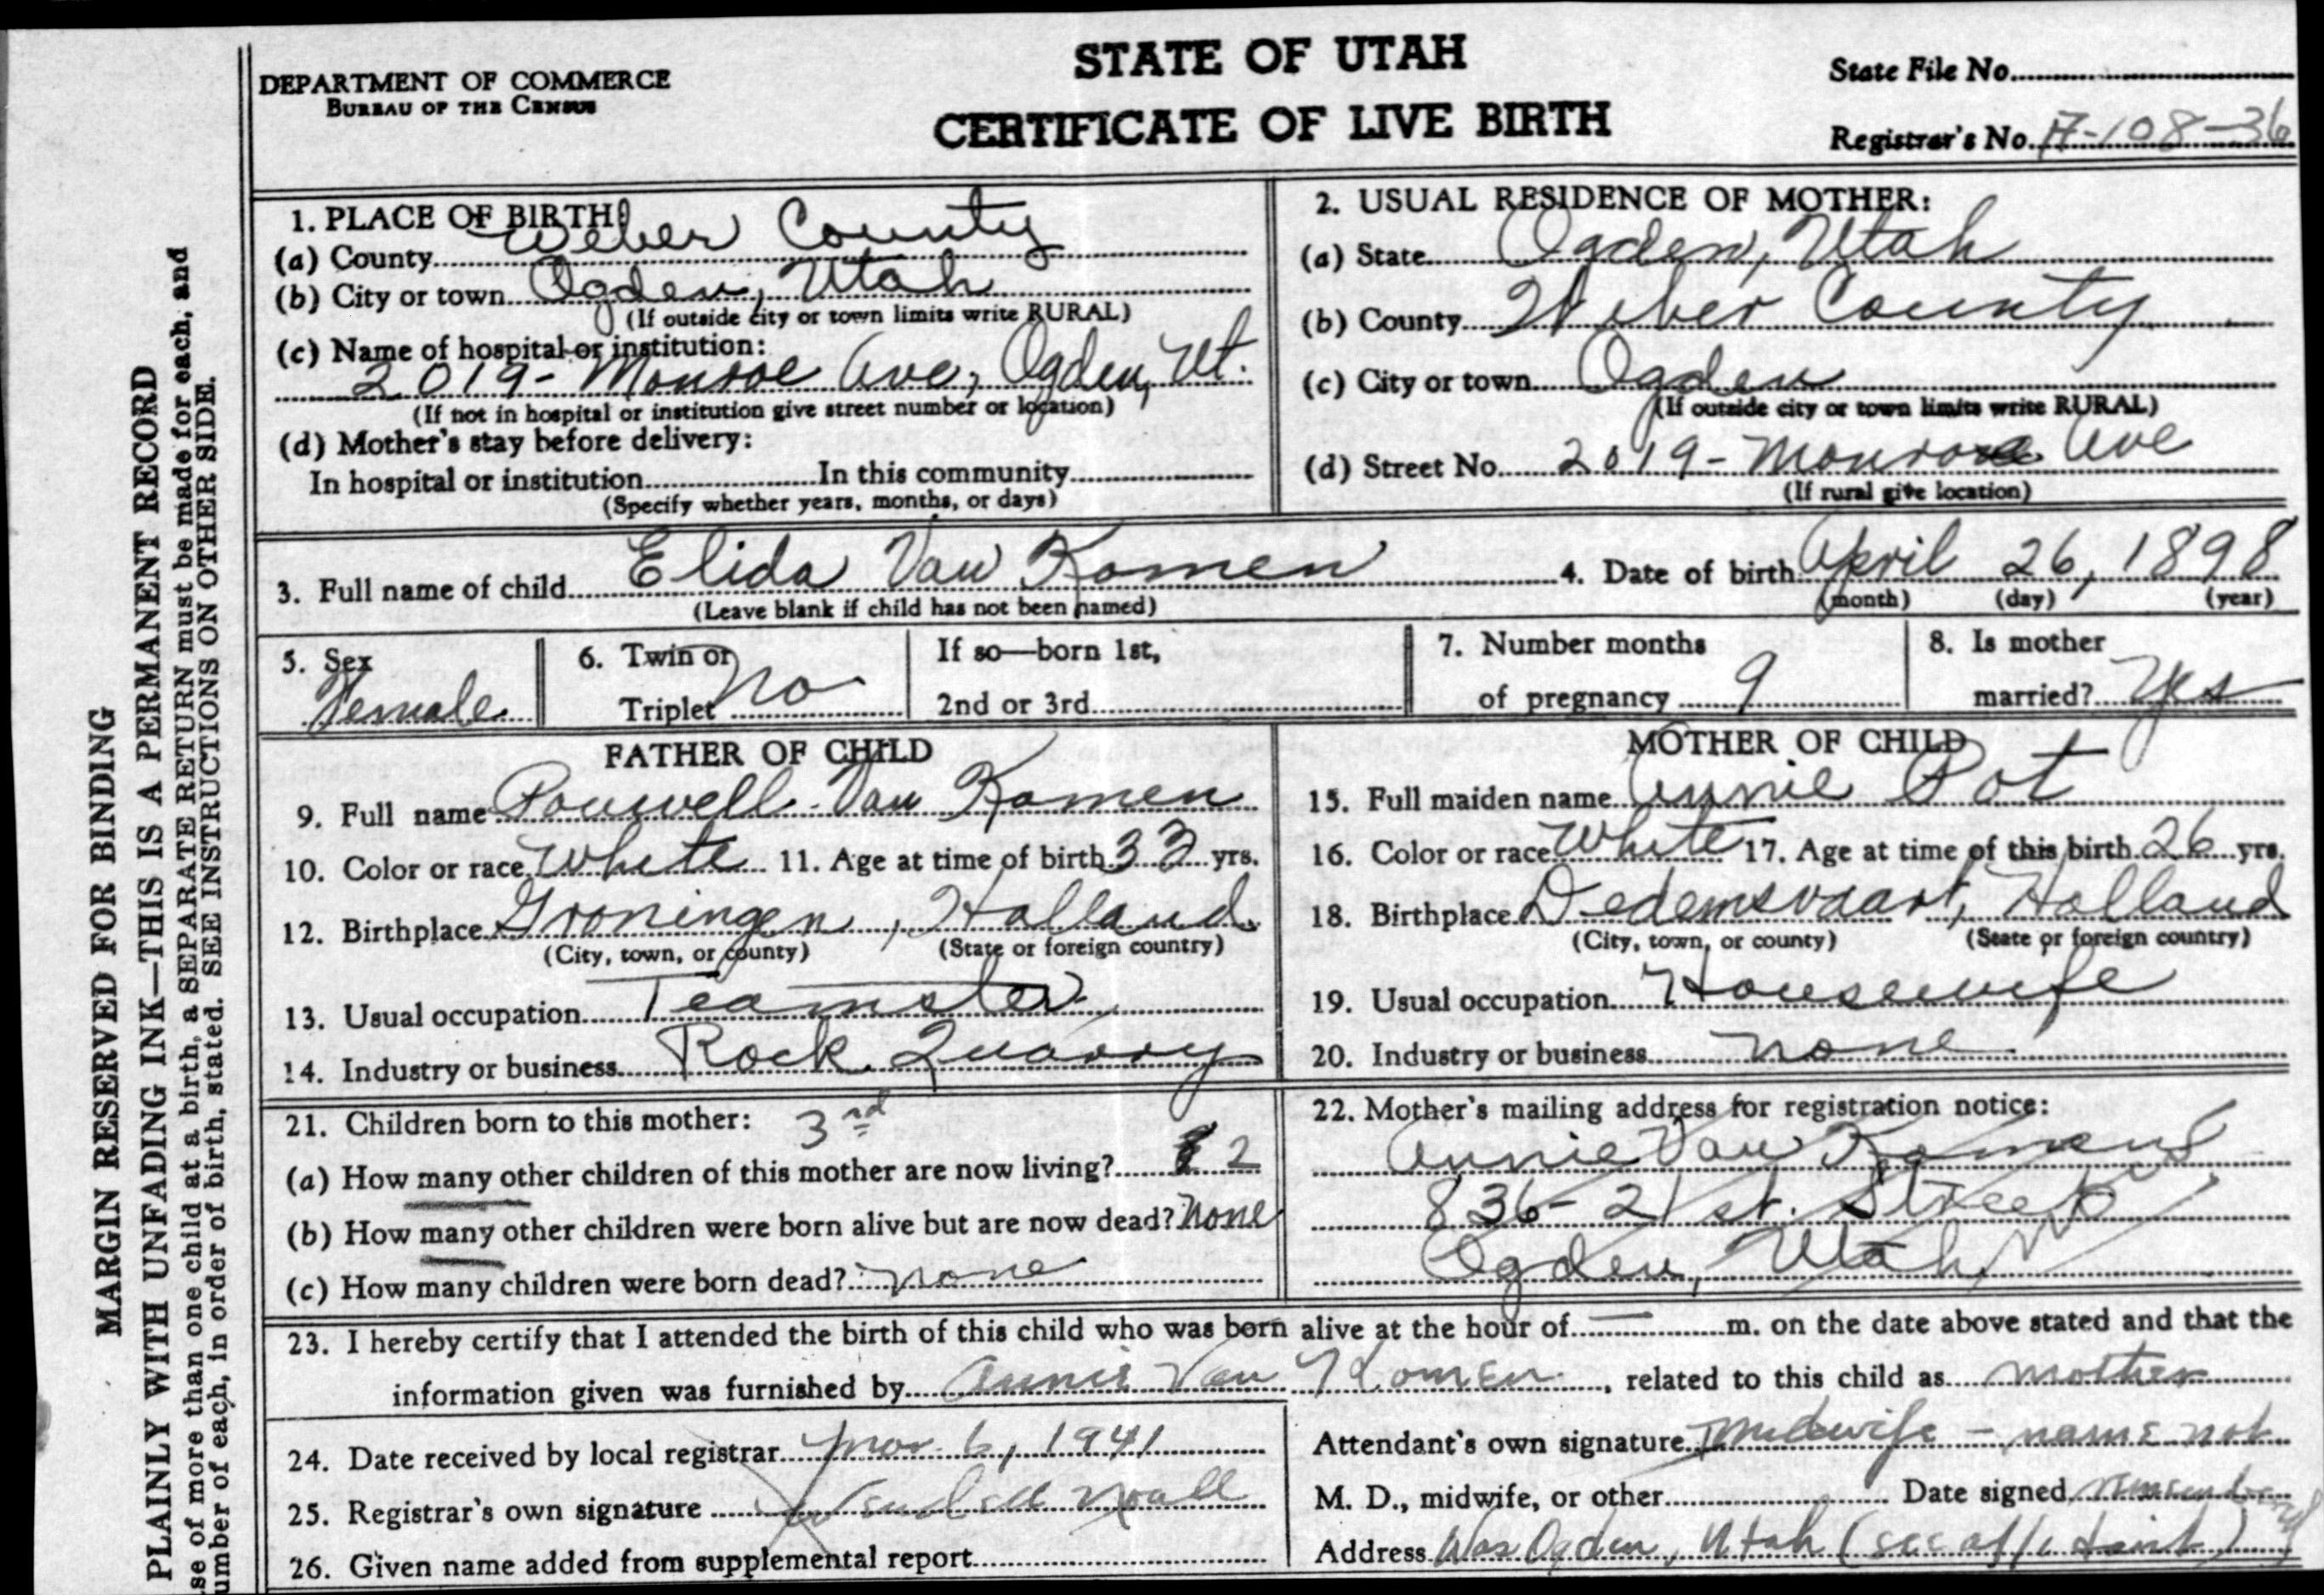 STATE OF UTAH
CERTIFICATE OF LIVE BIRTH
DEPARTMENT OF COMMERCE
BUREAU OF THE CENSUS
State File No.
Registrar's No. A-108-36
MARGIN RESERVED FOR BINDING
PLAINLY WITH UNFADING INK—THIS IS A PERMANENT RECORD
se of more than one child at a birth, a SEPARATE RETURN must be made for each, and
umber of each, in order of birth, stated. SEE INSTRUCTIONS ON OTHER SIDE.
1. PLACE OF BIRTH
(a) County Weber County
(b) City or town Ogden, Utah
(If outside city or town limits write RURAL)
(c) Name of hospital or institution:
2019- Monroe Ave, Ogden, Ut.
(If not in hospital or institution give street number or location)
(d) Mother's stay before delivery:
In hospital or institution In this community
(Specify whether years, months, or days)
2. USUAL RESIDENCE OF MOTHER:
(a) State Ogden, Utah
(b) County Weber County
(c) City or town Ogden
(If outside city or town limits write RURAL)
(d) Street No. 2019- Monroe Ave
(If rural give location)
3. Full name of child Elida Van Komen 4. Date of birth April 26, 1898
(Leave blank if child has not been named) (month) (day) (year)
5. Sex
Female
6. Twin or
Triplet no
If so—born 1st,
2nd or 3rd
7. Number months
of pregnancy 9
8. Is mother
married? Yes
FATHER OF CHILD
9. Full name Pouwell Van Komen
10. Color or race White 11. Age at time of birth 33 yrs.
12. Birthplace Groningen, Holland
(City, town, or county) (State or foreign country)
13. Usual occupation Teamster
14. Industry or business Rock Quarry
MOTHER OF CHILD
15. Full maiden name Annie Pot
16. Color or race White 17. Age at time of this birth 26 yrs.
18. Birthplace Dedemsvaart, Holland
(City, town, or county) (State or foreign country)
19. Usual occupation Housewife
20. Industry or business none
21. Children born to this mother: 3rd
(a) How many other children of this mother are now living? 2
(b) How many other children were born alive but are now dead? none
(c) How many children were born dead? none
22. Mother's mailing address for registration notice:
Annie Van Komen
836- 21 st. Street
Ogden, Utah
23. I hereby certify that I attended the birth of this child who was born alive at the hour of — m. on the date above stated and that the
information given was furnished by Annie Van Komen, related to this child as mother
24. Date received by local registrar Mar. 6, 1941
25. Registrar's own signature Noall
26. Given name added from supplemental report
Attendant's own signature Midwife - name not
M. D., midwife, or other Date signed remembered
Address Was Ogden, Utah (see affidavit)